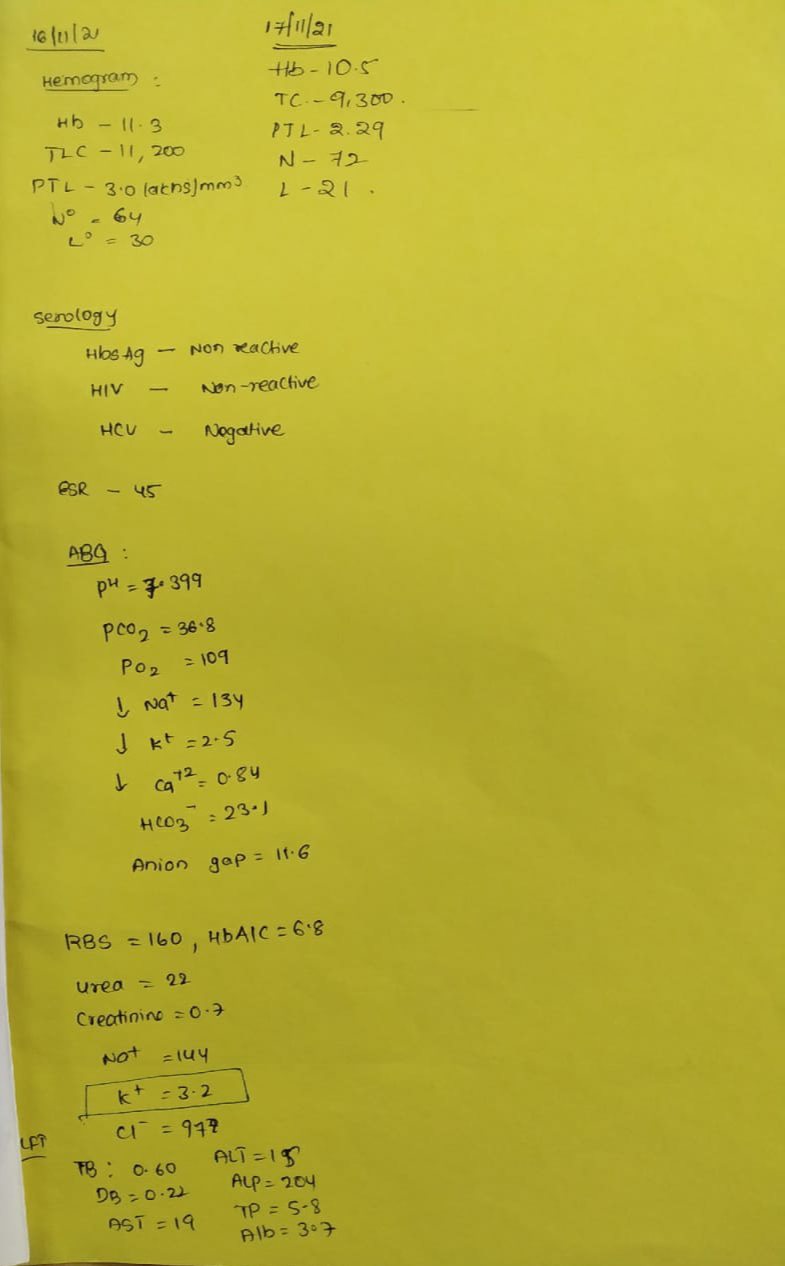 16/11/21
Hemogram :
Hb - 11.3
TLC - 11,200
PTL - 3.0 lakhs/mm³
N° = 64
L° = 30
17/11/21
Hb - 10.5
TC - 9,300.
PTL - 2.29
N - 72
L - 21.
Serology
HbsAg - Non reactive
HIV - Non-reactive
HCV - Nogative
ESR - 45
ABG :
pH = 7.399
PCO₂ = 36.8
PO₂ = 109
↓ Na⁺ = 134
↓ K⁺ = 2.5
↓ Ca⁺² = 0.84
HCO₃⁻ = 23.1
Anion gap = 11.6
RBS = 160, HbA1C = 6.8
Urea = 22
Creatinine = 0.7
Na⁺ = 144
K⁺ = 3.2
Cl⁻ =
LFT
TB : 0.60 ALT = 18
DB = 0.22 ALP = 204
AST = 19 TP = 5.8
Alb = 3.7